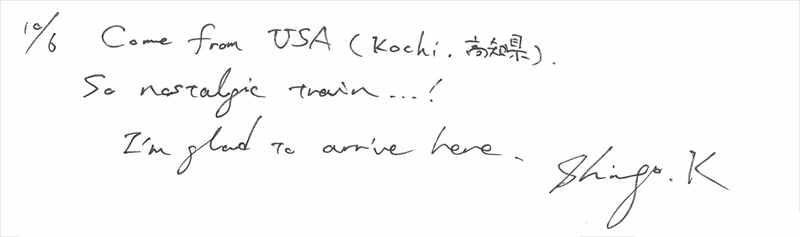 10/6 Come from USA (Kochi. 高知県).
So nostalgic train...!
I'm glad to arrive here.
Shingo.K